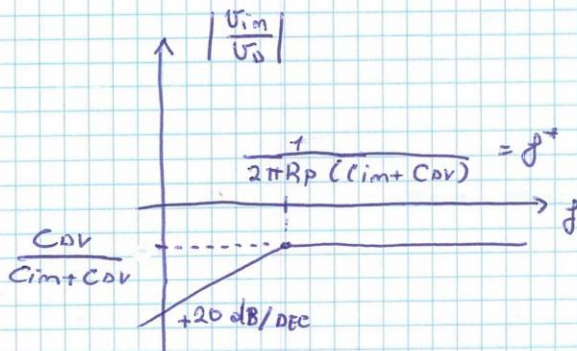 |Vim/VD|
1/(2πRp (Cim+CDV)) = f*
f
CDV/(Cim+CDV)
+20 dB/DEC